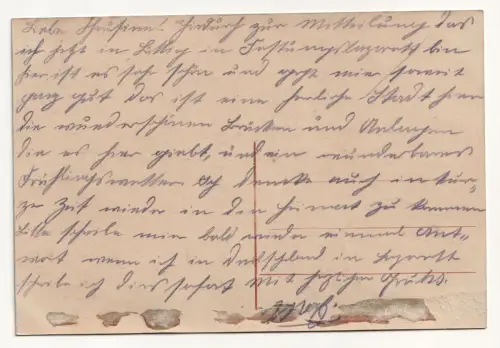 Liebe Cousine! Hirdurch zur Mitteilung das
ich jetzt in Lüttig in Festungslazarett bin
hier ist es sehr schön und geht mir soweit
ganz gut das ist eine herliche Stadt hier
die wunderschönen Brücken und Anlachen
die es hier giebt, und ein wunderbares
Frühlingswetter. Ich dencke auch in kur-
ze Zeit wieder in den Heimat zu kommen
Bitte schreibe mir bald wieder einmal Ant-
wort wenn ich in Deutschland in Lazarett
schreibe ich dies sofort Mit hezlichen Gruhs.